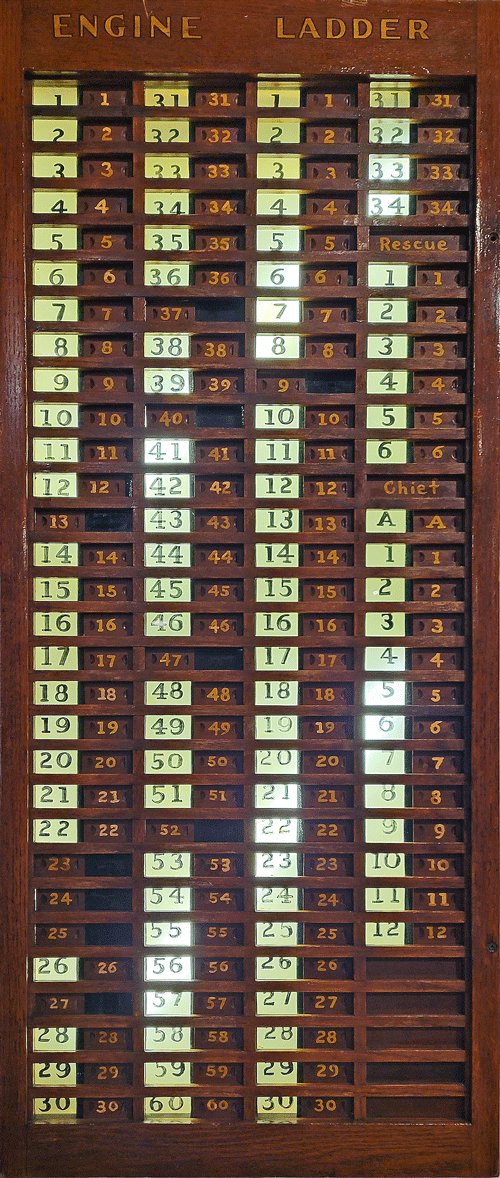 ENGINE LADDER
1 1 31 31 1 1 31 31
2 2 32 32 2 2 32 32
3 3 33 33 3 3 33 33
4 4 34 34 4 4 34 34
5 5 35 35 5 5 Rescue
6 6 36 36 6 6 1 1
7 7 37 7 7 2 2
8 8 38 38 8 8 3 3
9 9 39 39 9 4 4
10 10 40 10 10 5 5
11 11 41 41 11 11 6 6
12 12 42 42 12 12 Chief
13 43 43 13 13 A A
14 14 44 44 14 14 1 1
15 15 45 45 15 15 2 2
16 16 46 46 16 16 3 3
17 17 47 17 17 4 4
18 18 48 48 18 18 5 5
19 19 49 49 19 19 6 6
20 20 50 50 20 20 7 7
21 21 51 51 21 21 8 8
22 22 52 22 22 9 9
23 53 53 23 23 10 10
24 54 54 24 24 11 11
25 55 55 25 25 12 12
26 26 56 56 26 26
27 57 57 27 27
28 28 58 58 28 28
29 29 59 59 29 29
30 30 60 60 30 30